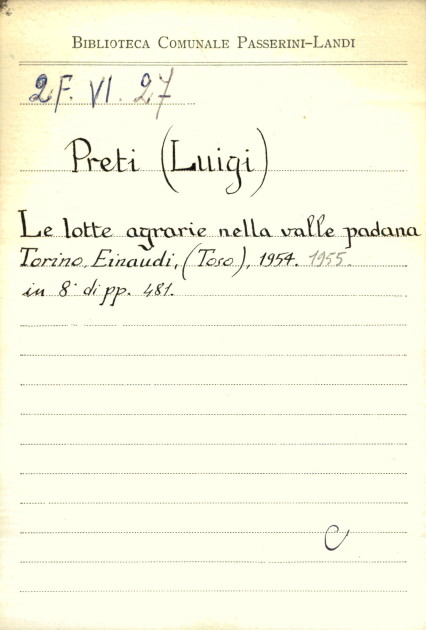 BIBLIOTECA COMUNALE PASSERINI-LANDI
2F. VI. 27
Preti (Luigi)
Le lotte agrarie nella valle padana
Torino, Einaudi, (Toso), 1954. 1955.
in 8° di pp. 481.
C